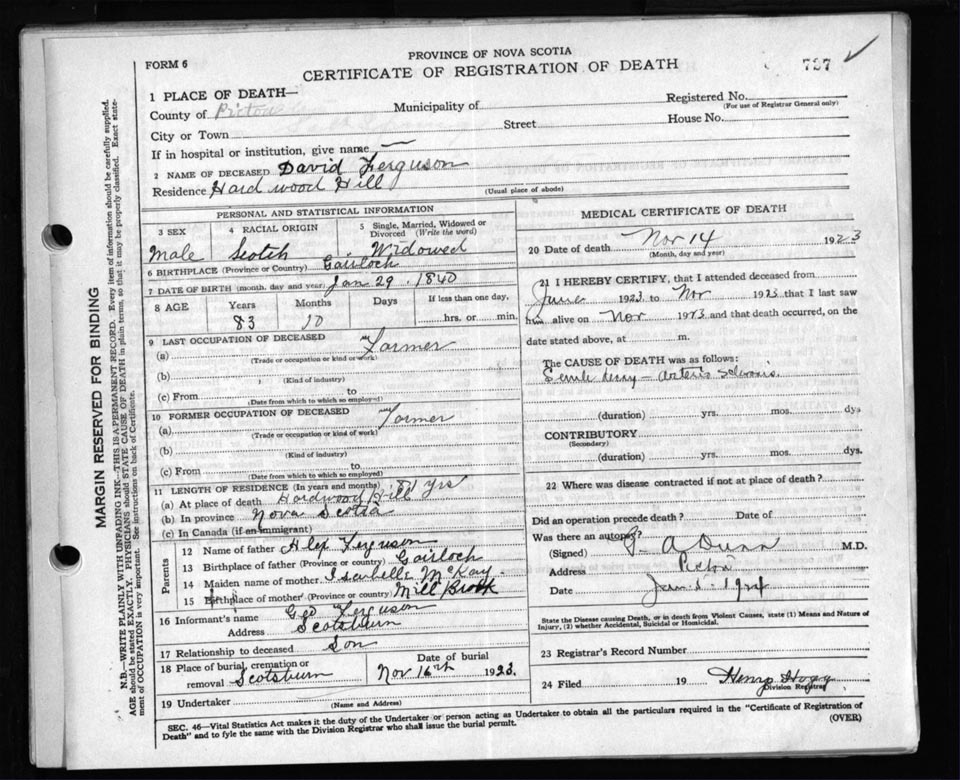 PROVINCE OF NOVA SCOTIA
FORM 6
CERTIFICATE OF REGISTRATION OF DEATH
1 PLACE OF DEATH—
County of Pictou Municipality of Registered No.
(For use of Registrar General only)
City or Town Street House No.
If in hospital or institution, give name —
2 NAME OF DECEASED David Ferguson
Residence Hard wood Hill
(Usual place of abode)
PERSONAL AND STATISTICAL INFORMATION
3 SEX 4 RACIAL ORIGIN 5 Single, Married, Widowed or Divorced (Write the word)
Male Scotch Widowed
6 BIRTHPLACE (Province or Country) Gairloch
7 DATE OF BIRTH (month, day and year) Jan 29, 1840
8 AGE Years Months Days If less than one day,
83 10 hrs. or min.
9 LAST OCCUPATION OF DECEASED
(a) Farmer
(Trade or occupation or kind of work)
(b)
(Kind of industry)
(c) From to
(Date from which to which so employed)
10 FORMER OCCUPATION OF DECEASED
(a) Farmer
(Trade or occupation or kind of work)
(b)
(Kind of industry)
(c) From to
(Date from which to which so employed)
11 LENGTH OF RESIDENCE (In years and months) yrs
(a) At place of death Hardwood Hill
(b) In province Nova Scotia
(c) In Canada (if an immigrant)
Parents
12 Name of father Alex Ferguson
13 Birthplace of father (Province or country) Gairloch
14 Maiden name of mother Isabelle McKay
15 Birthplace of mother (Province or country) Mill Brook
16 Informant's name Geo Ferguson
Address Scotsburn
17 Relationship to deceased Son
18 Place of burial, cremation or removal Scotsburn
Date of burial
Nov 16th 1923.
19 Undertaker
(Name and Address)
MEDICAL CERTIFICATE OF DEATH
20 Date of death Nov 14 1923
(Month, day and year)
21 I HEREBY CERTIFY, that I attended deceased from
June 1923 to Nov 1923 that I last saw
him alive on Nov 1923 and that death occurred, on the
date stated above, at m.
The CAUSE OF DEATH was as follows:
Senile decay — Arterio Sclerosis.
(duration) yrs. mos. dys
CONTRIBUTORY
(Secondary)
(duration) yrs. mos. dys.
22 Where was disease contracted if not at place of death?
Did an operation precede death? Date of
Was there an autopsy?
(Signed) J. A Dunn M.D.
Address Pictou
Date Jan 1924
State the Disease causing Death, or in death from Violent Causes, state (1) Means and Nature of
Injury, (2) whether Accidental, Suicidal or Homicidal.
23 Registrar's Record Number
24 Filed 19 Henry Hogg
Division Registrar
SEC. 46—Vital Statistics Act makes it the duty of the Undertaker or person acting as Undertaker to obtain all the particulars required in the "Certificate of Registration of
Death" and to fyle the same with the Division Registrar who shall issue the burial permit.
(OVER)
MARGIN RESERVED FOR BINDING
N.B.—WRITE PLAINLY WITH UNFADING INK—THIS IS A PERMANENT RECORD. Every item of information should be carefully supplied.
AGE should be stated EXACTLY. PHYSICIANS should STATE CAUSE OF DEATH in plain terms, so that it may be properly classified. Exact state-
ment of OCCUPATION is very important. See instructions on back of Certificate.